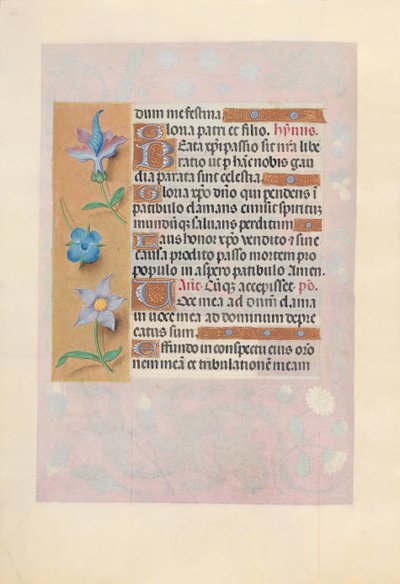 dum me festina
Gloria patri et filio. hỹnus.
Beata xp̃i passio sit nr̃a libe
ratio ut p̱ hãc nobis gau
dia parata sint celestia
Gloria xp̃o dñ̃o qui pendens ĩ
patibulo clamans emisit spiritus
mundũ q̃ saluans perditum
Laus honor xp̃o vendito ⁊ sine
causa prodito passo mortem pro
populo in aspero patibulo Amen.
Añt. Cũq̃ accepisset. ps̃
Voce mea ad dñm clama
ui uoce mea ad dominum depre
catus sum.
Effundo in conspectu eius oro
nem meã et tribulationẽ meam